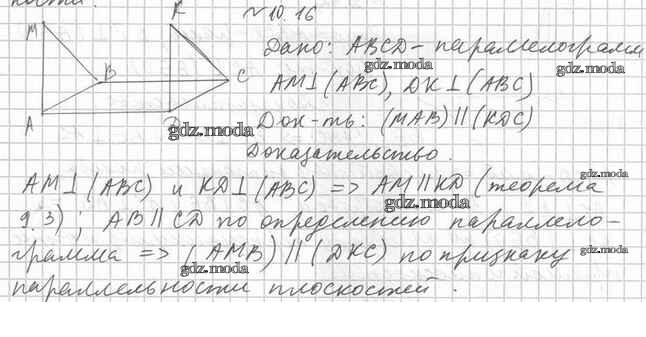 ности.
№ 10.16
M
K
B
C
A
D
Дано: ABCD - параллелограмм
gdz.moda
gdz.moda
AM⊥(ABC), DK⊥(ABC)
Док-ть: (MAB)||(KDC)
gdz.moda
Доказательство.
gdz.moda
AM⊥(ABC) и KD⊥(ABC) => AM||KD (теорема
gdz.moda
9.3); AB||CD по определению параллело-
грамма => (AMB)||(DKC) по признаку
gdz.moda
gdz.moda
параллельности плоскостей.
gdz.moda